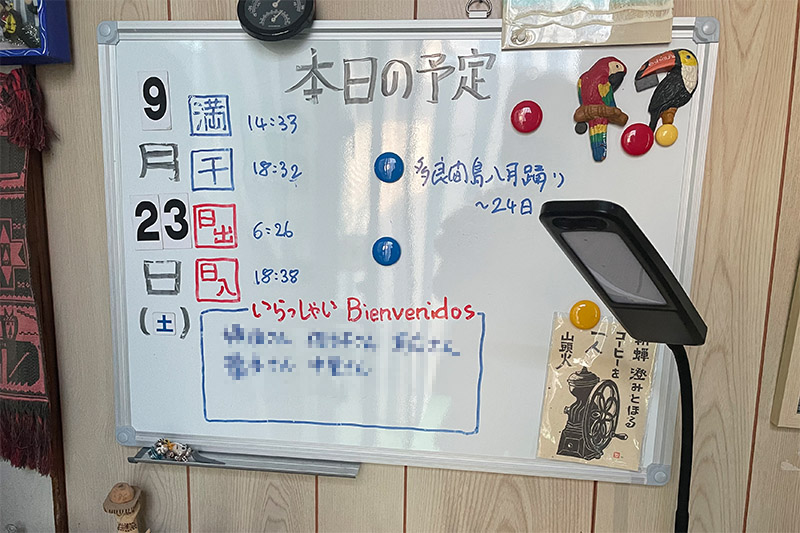 本日の予定
9
月
23
日
(土)
満 14:33
干 18:32
日出 6:26
日入 18:38
多良間島八月踊り
~24日
いらっしゃい Bienvenidos
新蝉 澄みとほる
コーヒーを
一人
山頭火